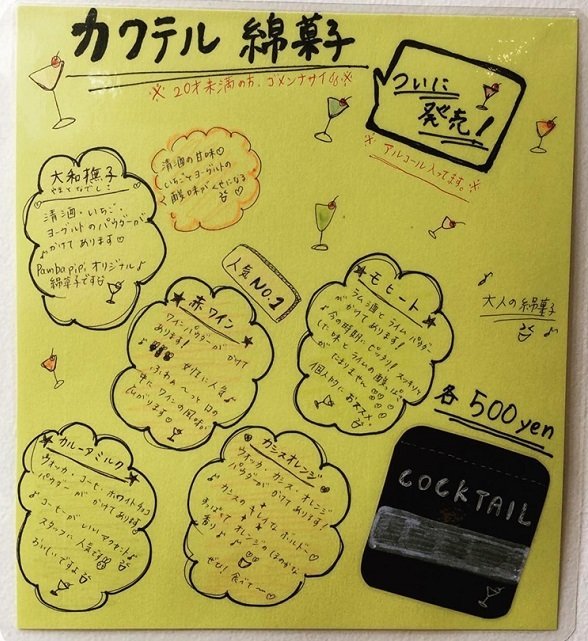 カクテル 綿菓子
※20才未満の方、ゴメンナサイ※
ついに
発売!
※アルコール入ってます。※
大和撫子
やまとなでしこ
清酒・いちご・
ヨーグルトのパウダーが
かけてあります♡
Pambapipi オリジナル♪
綿菓子です
清酒の甘味♡
いちごとヨーグルトの
酸味がくせになる
人気NO.1
★赤ワイン
ワインパウダーがかけて
あります!
女性に人気♪
ふわぁ〜っと口の
中にワインの風味が
広がります♡
★モヒート★
ラム酒とライムパウダー
がかけてあります!
♪今の時期にピッタリ!スッキリ
した味とライムの酸っぱさ
がたまりません
個人的におススメ♪
♪大人の綿菓子
各500yen
★カルーアミルク★
ウォッカ・コーヒー・ホワイトチョコ
パウダーがかけてあります
♪コーヒーがいいアクセント♪
スタッフに人気です
おいしいですよ
カシスオレンジ
ウォッカ・カシス・オレンジ
パウダーがかけてあります!
カシスのキレイな
オレンジのほのかな
香り♪
ぜひ食べて〜♡
COCKTAIL